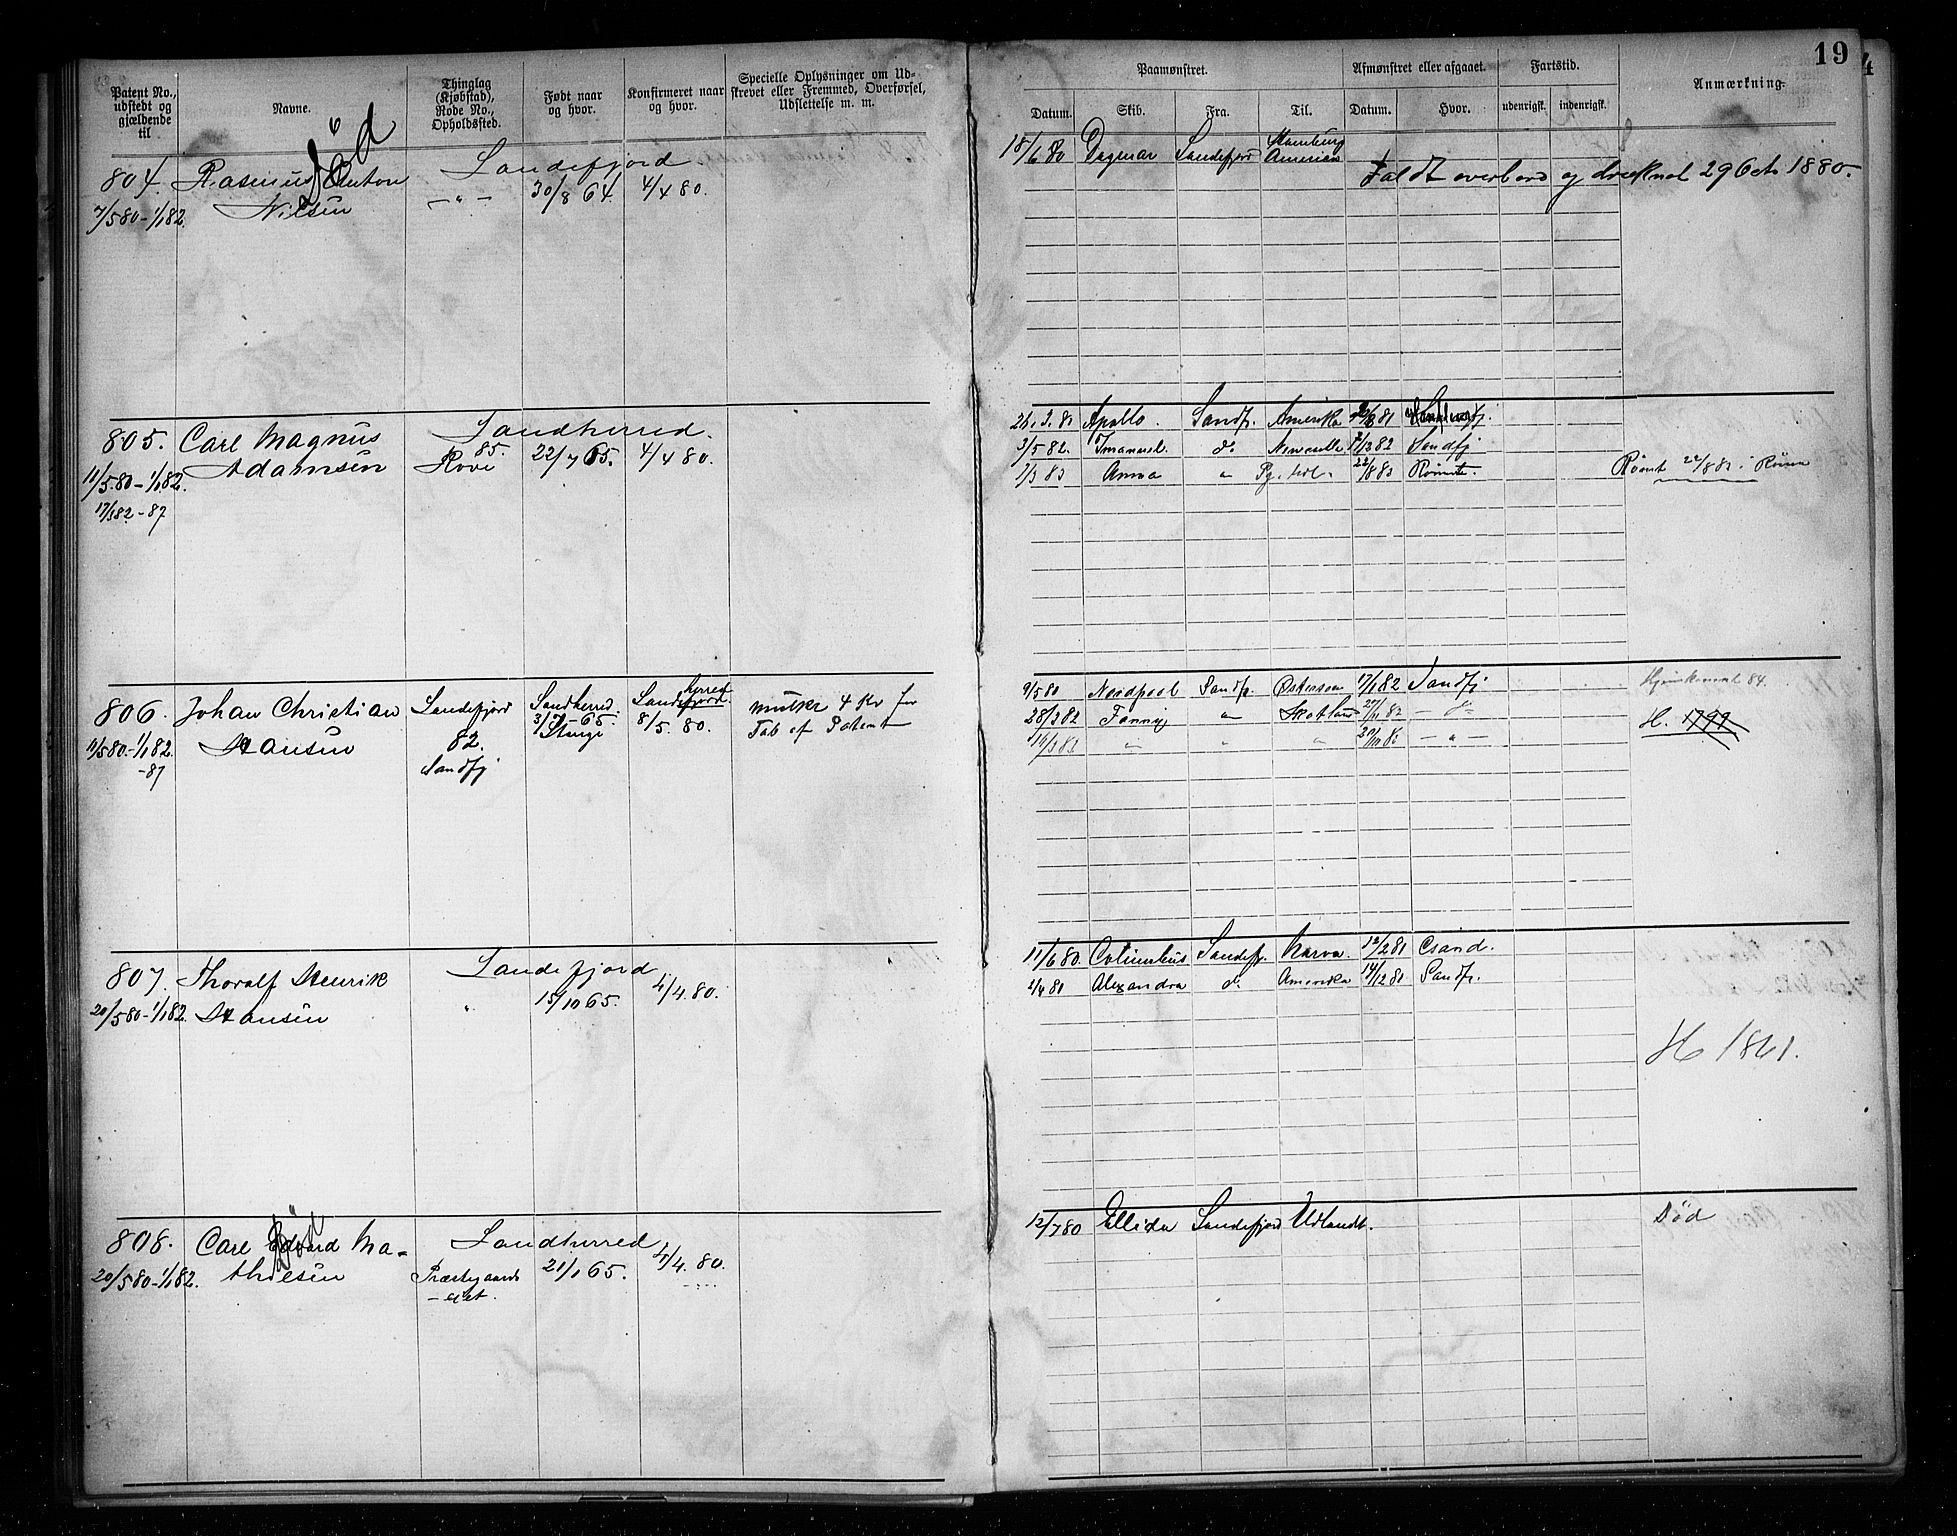 19
4
Patent No., udstedt og gjældende til
Navne.
Thinglag (Kjøbstad), Rode No., Opholdssted.
Født naar og hvor.
Konfirmeret naar og hvor.
Specielle Oplysninger om Udskrevet eller Fremmed, Overførsel, Udslettelse m. m.
Paamønstret.
Afmønstret eller afgaaet.
Fartstid.
Anmærkning.
Datum. Skib. Fra. Til. Datum. Hvor. udenrigsk. indenrigsk.
Død
804. Rasmus Anton Sandefjord.
7/5 80 - 1/1 82. Nilsen - " - 30/8 64. 4/4 80.
18/6 80 Dagmar Sandefjord Hamburg
Faldt overbord og druknet 29 Octr 1880.
805. Carl Magnus Sandherred.
85.
11/5 80 - 1/1 82. Adamsen Rove 22/7 65. 4/4 80.
17/3 82 - 87
26.3.81 Apollo. Sandfj. Amerika
3/5 82. Imanuel. do Newcastle 82 Sandfj
83 Anna " 22/8 83 Rømte.
Rømt 22/8 83 i
806. Johan Christian Sandefjord Sandherred. Sandefjord herred mulkt 4 Kr for
11/5 80 - 1/1 82. Hansen 82. 65 8/5. 80. Tab af Patent
- 87 Sandfj
9/5 80 Nordpool Sandfj. Østersøen 17/1 82 Sandfj
28/2 82 Fanny " Skotland 82 - do -
83 " " " 83 - " -
84.
H. 1799
807. Thoralf Henrik Sandefjord
20/5 80 - 1/1 82. Hansen " 15/10 65. 4/4. 80.
11/6 80. Columbus Sandefj. Narva. 12/2 81 Csand.
2/4 81 Alexandra do Amerika 14/12 81 Sandfj.
H 1861.
Død
808. Carl Edvard Ma- Sandherred
20/5 80 - 1/1 82. thisen Præstegaards 21/1 65. 4/4. 80.
- eiet.
12/7 80 Ellida Sandefjord Udlandt.
Død